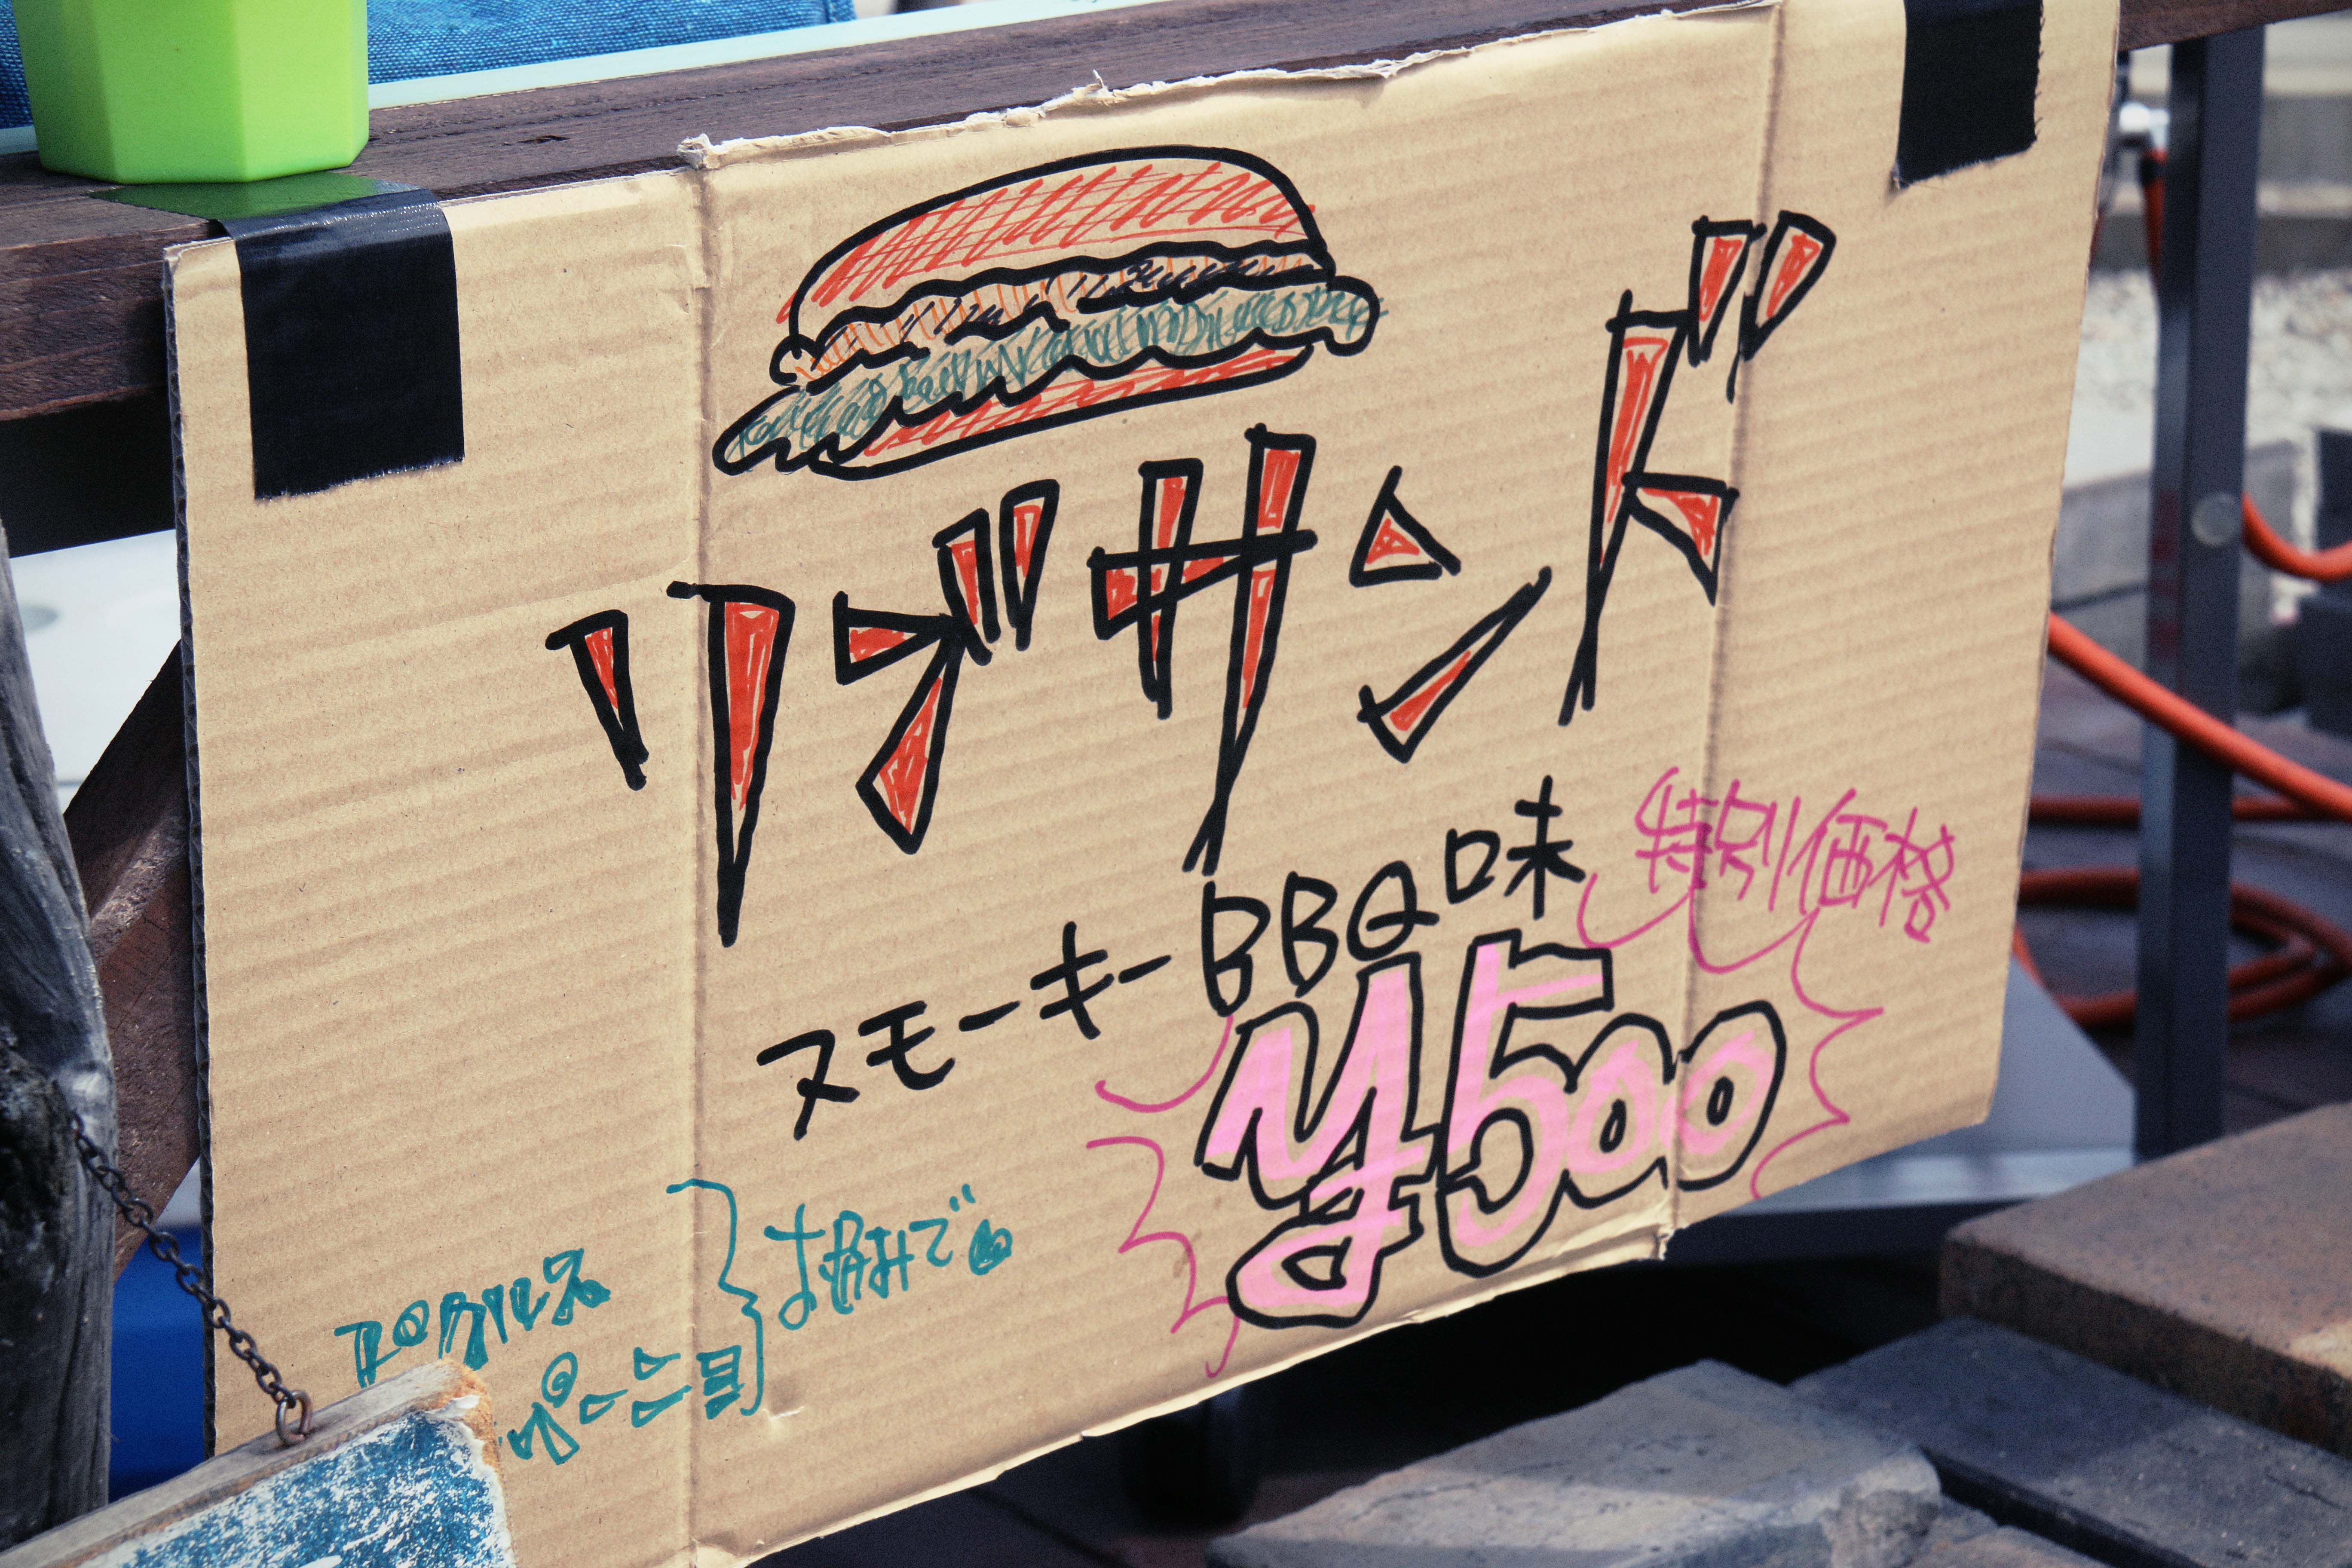 リブサンド
スモーキーBBQ味
特別価格
¥500
ピクルス
ペーニョ
お好みで